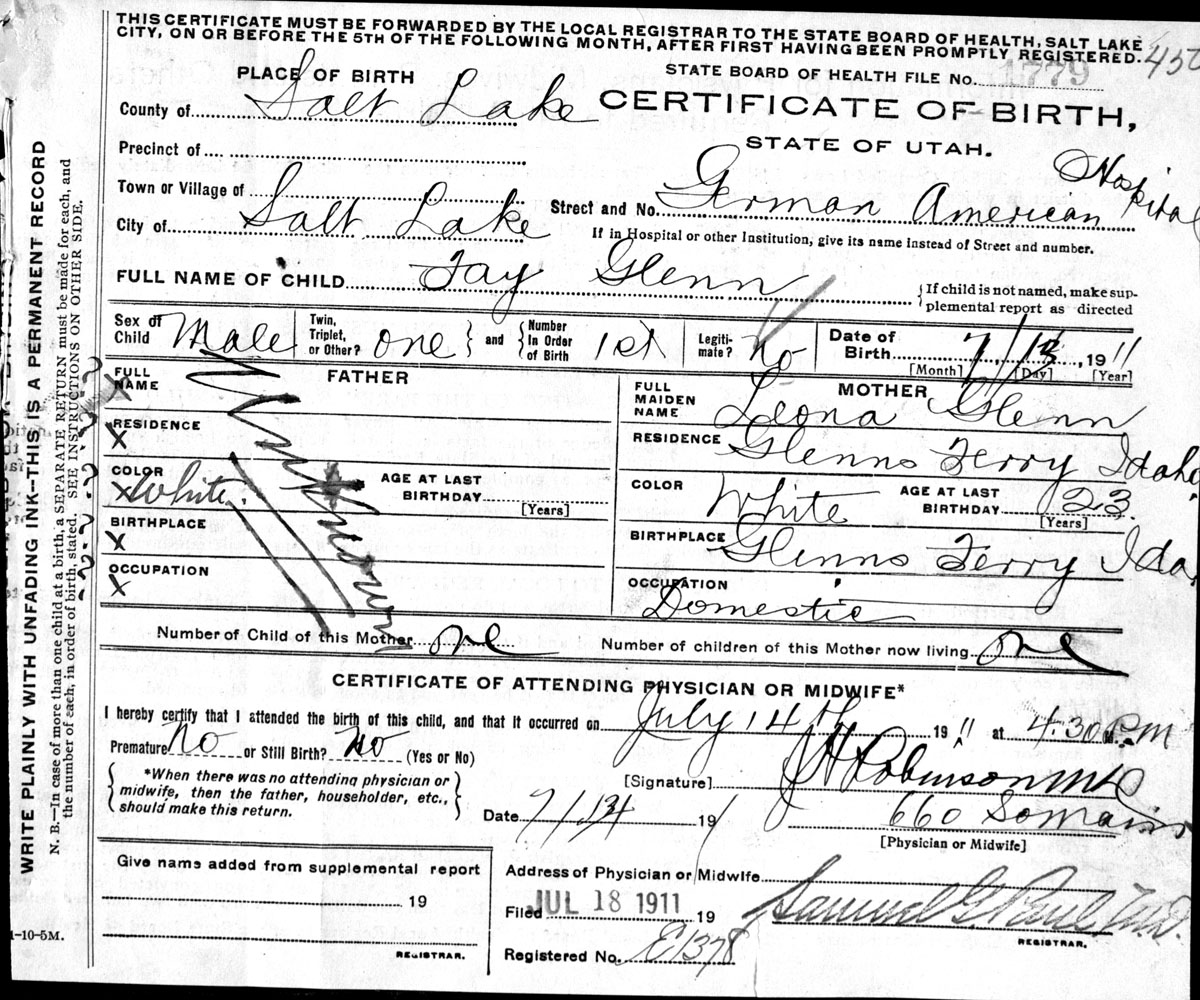 THIS CERTIFICATE MUST BE FORWARDED BY THE LOCAL REGISTRAR TO THE STATE BOARD OF HEALTH, SALT LAKE
CITY, ON OR BEFORE THE 5TH OF THE FOLLOWING MONTH, AFTER FIRST HAVING BEEN PROMPTLY REGISTERED.
450
PLACE OF BIRTH
STATE BOARD OF HEALTH FILE NO. 1779
County of Salt Lake
CERTIFICATE OF BIRTH,
STATE OF UTAH.
Precinct of
Town or Village of
Street and No. German American Hospital
City of Salt Lake
If in Hospital or other Institution, give its name instead of Street and number.
FULL NAME OF CHILD Fay Glenn
If child is not named, make sup-
plemental report as directed
Sex of Child Male
Twin, Triplet, or Other? one
and
Number In Order of Birth 1st
Legiti-mate? No
Date of Birth 7/13, 1911
[Month] [Day] [Year]
FATHER
FULL NAME
Unknown
RESIDENCE
COLOR White
AGE AT LAST BIRTHDAY
[Years]
BIRTHPLACE
OCCUPATION
MOTHER
FULL MAIDEN NAME Leona Glenn
RESIDENCE Glenns Ferry Idaho
COLOR White
AGE AT LAST BIRTHDAY 23
[Years]
BIRTHPLACE Glenns Ferry Ida
OCCUPATION
Domestic
Number of Child of this Mother one
Number of children of this Mother now living one
CERTIFICATE OF ATTENDING PHYSICIAN OR MIDWIFE*
I hereby certify that I attended the birth of this child, and that it occurred on July 14th 1911 at 4:30 P.M
Premature No or Still Birth? No (Yes or No)
*When there was no attending physician or
midwife, then the father, householder, etc.,
should make this return.
[Signature] J H Robinson MD
Date 7/14 191
660 So Main
[Physician or Midwife]
Give name added from supplemental report
19
REGISTRAR.
Address of Physician or Midwife
Filed JUL 18 1911 19
Samuel G. Paul M.D.
REGISTRAR.
Registered No. E1378
1-10-5M.
WRITE PLAINLY WITH UNFADING INK—THIS IS A PERMANENT RECORD
N. B.—In case of more than one child at a birth, a SEPARATE RETURN must be made for each, and
the number of each, in order of birth, stated. SEE INSTRUCTIONS ON OTHER SIDE.